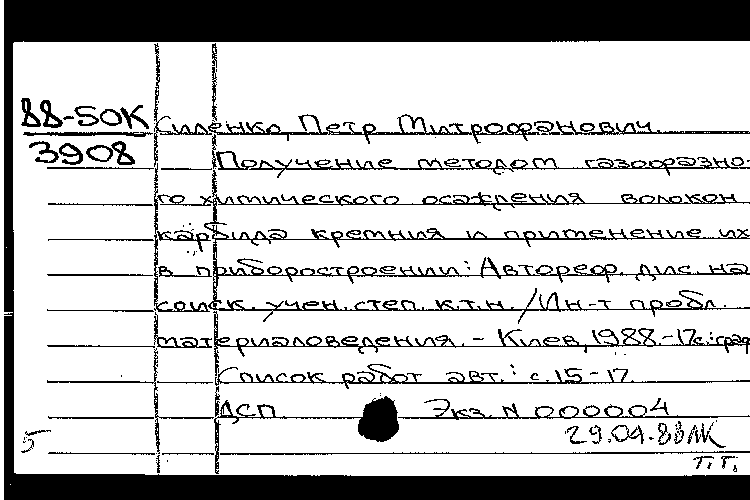 88-50К
3908
Силенко, Петр Митрофанович.
Получение методом газофазно-
го химического осаждения волокон
карбида кремния и применение их
в приборостроении: Автореф. дис. на
соиск. учен. степ. к.т.н. / Ин-т пробл.
материаловедения. - Киев, 1988. - 17с.: граф
Список работ авт.: с. 15-17.
ДСП. Экз. N 000004
29.04.88
5
Т.Г.